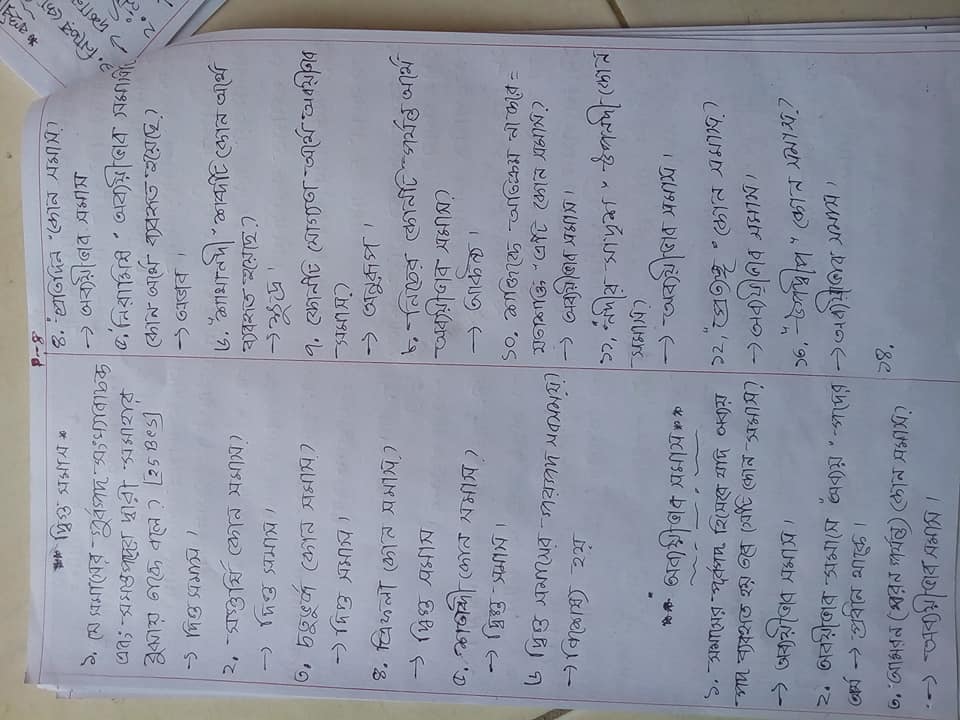 P-8
** দ্বিগু সমাস *
১. যে সমাসের পূর্বপদ সংখ্যাবাচক
এবং সমস্তপদের দ্বারা সমাহার
বুঝায় তাকে বলে? [25 Bcs]
→ দিগু সমাস।
২. সপ্তর্ষি কোন সমাস?
→ দিগু সমাস।
৩. চতুর্ভুজ কোন সমাস?
→ দিগু সমাস।
৪. ত্রিফলা কোন সমাস?
→ দ্বিগু সমাস
৫. শতাব্দী কোন সমাস?
→ দ্বিগু সমাস।
৬ দ্বিগু সমাসের পরপদ সবসময়?
→ বিশেষ্য হয়
** অব্যয়ীভাব সমাস **
১. সমাসের পূর্বপদ হিসেবে যদি অব্যয়
পদ ব্যবহৃত হয় তবে সেটি কোন সমাস?
→ অব্যয়ীভাব সমাস।
২. অবয়ীভাব সমাসে "অব্যয়" পদের
অর্থ → প্রধান থাকে।
৩. আমরন (মরন পর্যন্ত) কোন সমাস?
→ অব্যয়ীভাব সমাস।
৪. "প্রতিদিন" কোন সমাস?
→ অব্যয়ীভাব সমাস
৫. "নিরামিষ" অব্যয়ীভাব সমাসটি
কোন অর্থে ব্যবহৃত হয়েছে?
→ অভাব।
৬. "শাখানদী" শব্দটি কোন অর্থে
ব্যবহৃত হয়েছে?
→ ক্ষুদ্র।
৭. কোনটি যোগ্যতা অর্থে অবয়ীভাব
সমাস?
→ অনুরূপ।
৮. নিচের কোনটি পর্যন্ত অর্থে
অব্যয়ীভাব সমাস?
→ আকন্ঠ।
১০. শক্তিকে অতিক্রম না করে =
যথাশক্তি "এটি কোন সমাস?
→ অব্যয়ীভাব সমাস।
১১. "নদীর সাদৃশ" উপনদী কোন
সমাস?
→ অব্যয়ীভাব সমাস।
১২. "প্রত্যঙ্গ" কোন সমাস?
→ অব্যয়ীভাব সমাস।
১৩. "উপদ্বীপ" কোন সমাস?
→ অব্যয়ীভাব সমাস।
১৪.